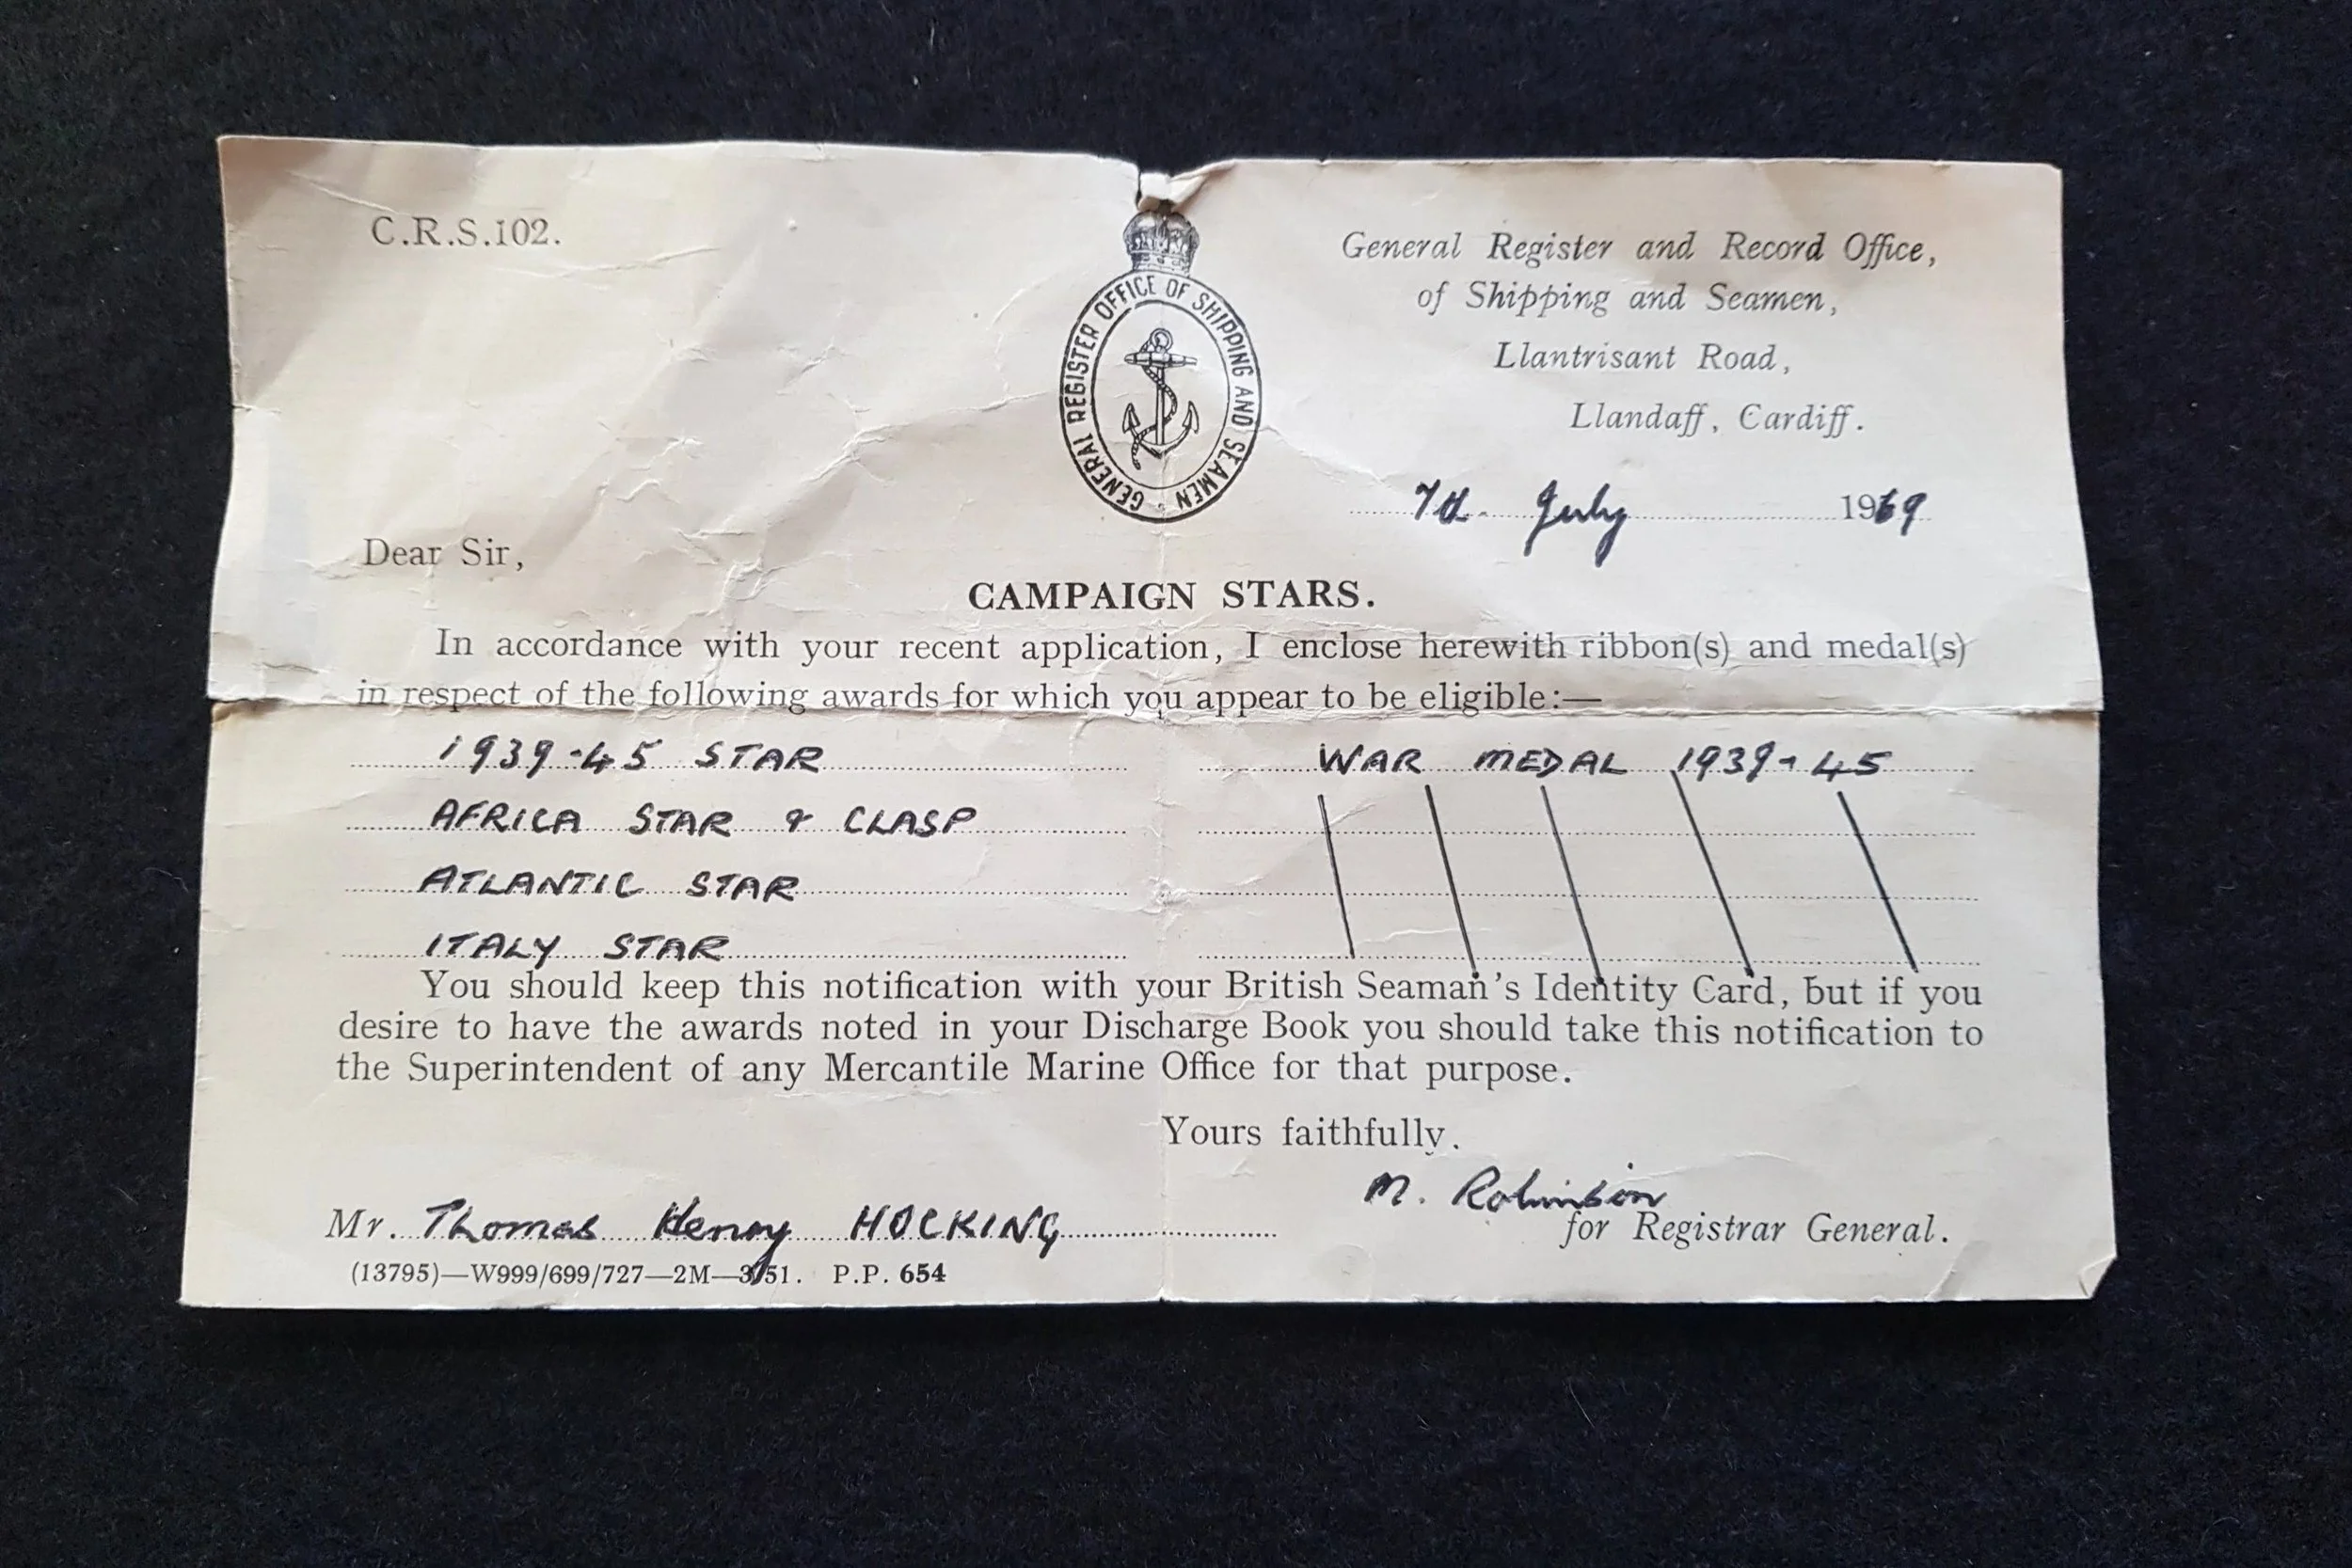 C.R.S.102.
GENERAL REGISTER OFFICE OF SHIPPING AND SEAMEN
General Register and Record Office,
of Shipping and Seamen,
Llantrisant Road,
Llandaff, Cardiff.
7th July 1969
Dear Sir,
CAMPAIGN STARS.
In accordance with your recent application, I enclose herewith ribbon(s) and medal(s)
in respect of the following awards for which you appear to be eligible:—
1939-45 STAR WAR MEDAL 1939-45
AFRICA STAR & CLASP
ATLANTIC STAR
ITALY STAR
You should keep this notification with your British Seaman's Identity Card, but if you
desire to have the awards noted in your Discharge Book you should take this notification to
the Superintendent of any Mercantile Marine Office for that purpose.
Yours faithfully.
M. Robinson
for Registrar General.
Mr. Thomas Henry HOCKING
(13795)—W999/699/727—2M—3/51. P.P. 654